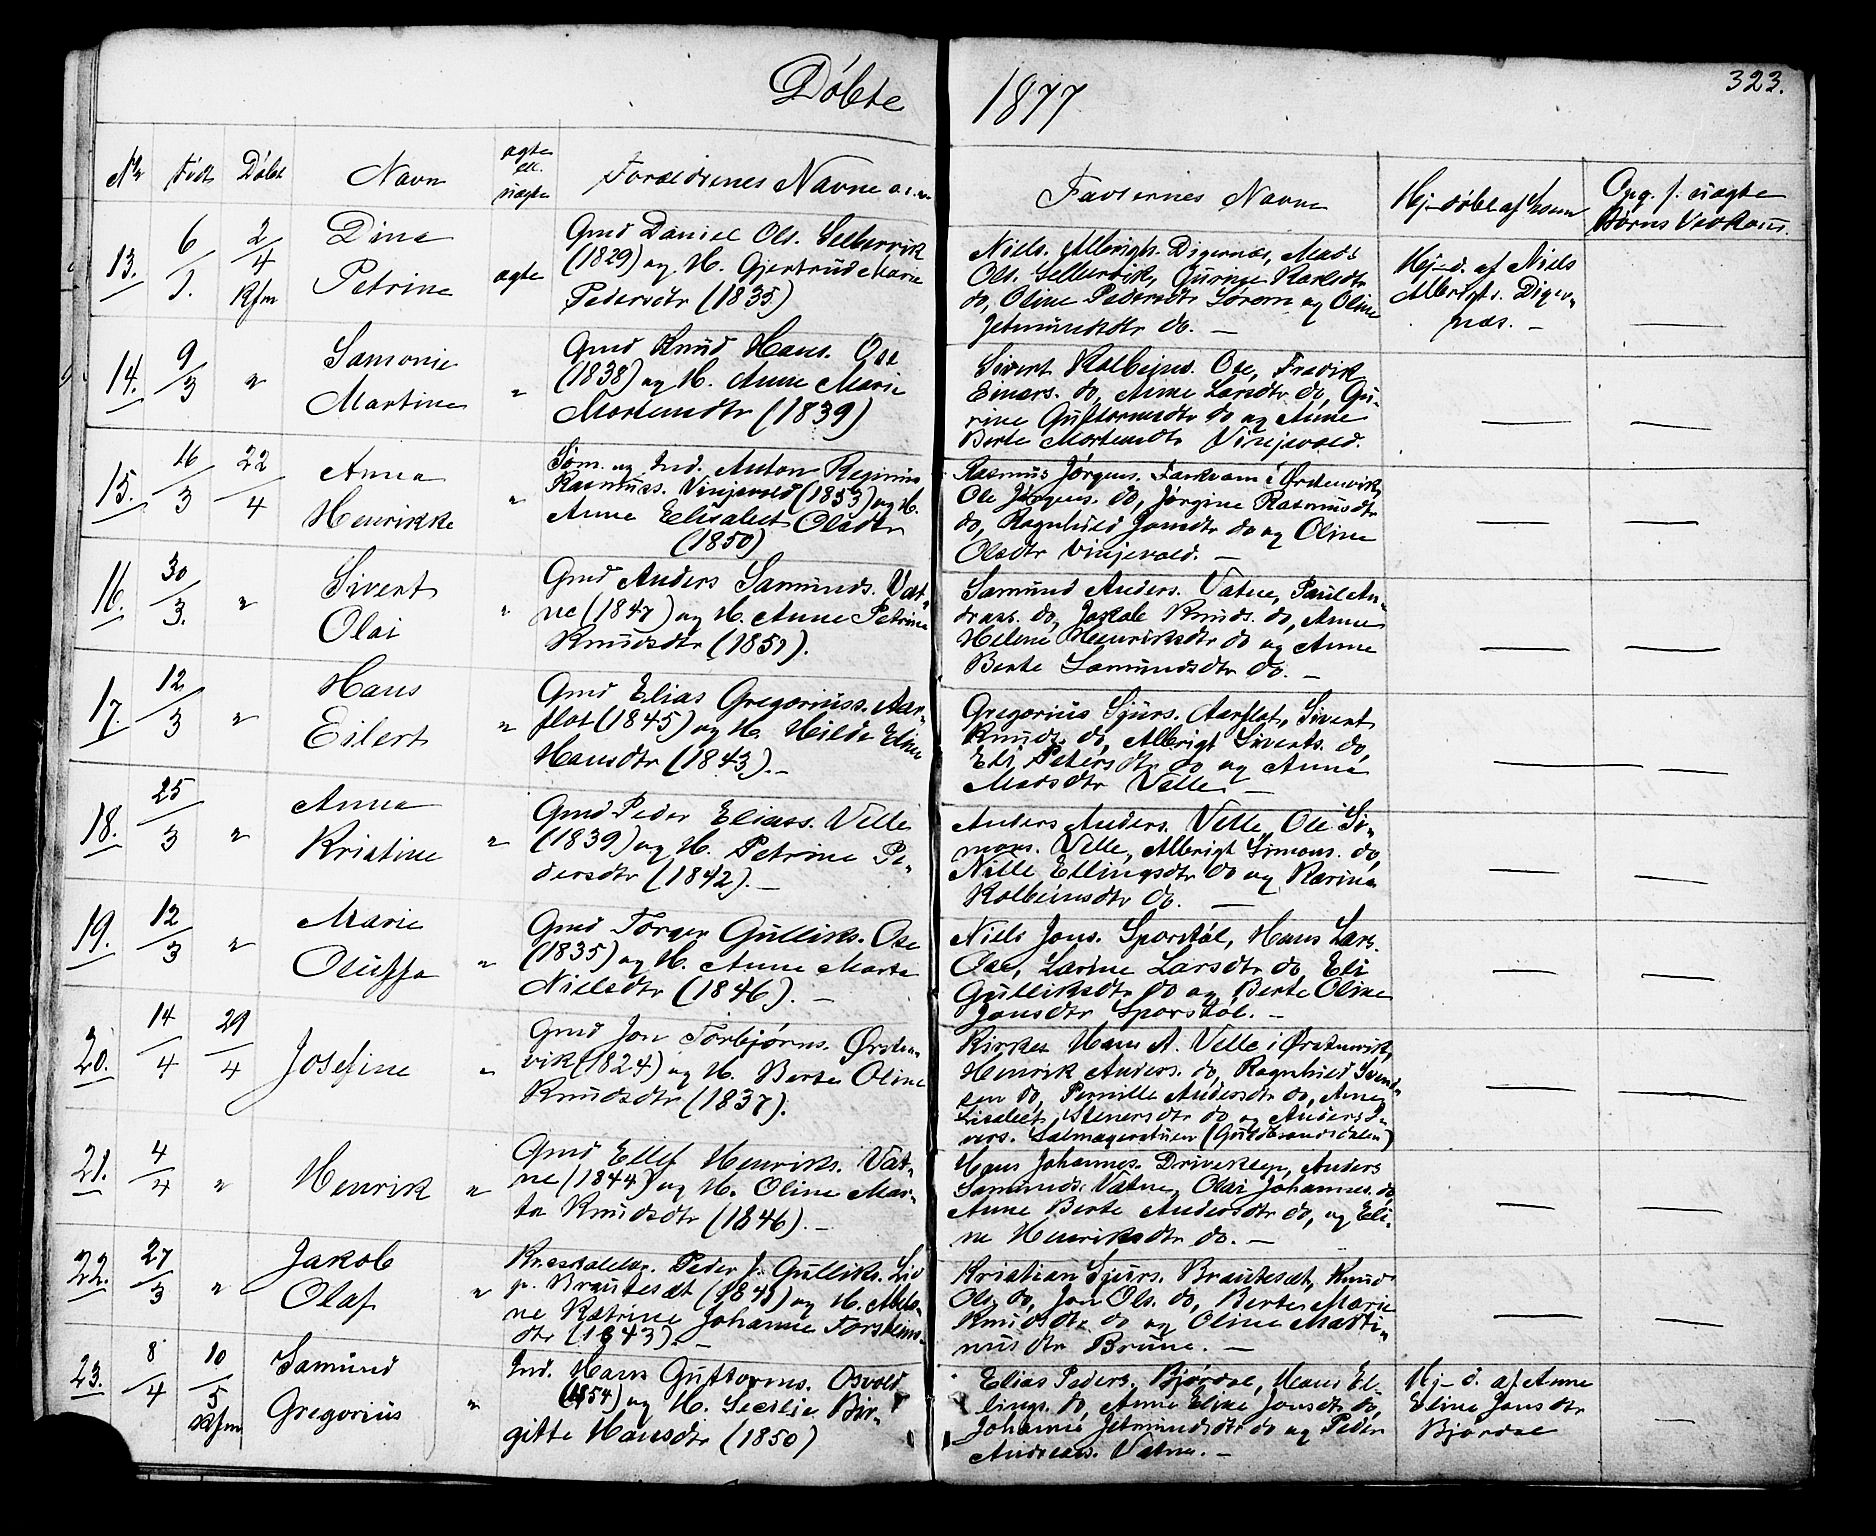 Döbte 1877 323.
No Födt Döbt Navn ægte ell. uægte Forældrenes Navne
Faddernes Navne Hj-döbt af hvem Opg. f. uægte Börns Vedkom.
13. 6/1. 2/4 Kfm Dina Petrine ægte
Gmd Daniel Ols. Sellervik
(1829) og H. Gjertrud Marie
Pedersdtr (1835)
Niels. Albrigts. Digernæs, Mads
Ols. Sellervik, Gurine Karlsdtr
do, Oline Pedersdtr Sörem og Oline
Jetmundsdtr do. —
Hj-d. af Niels
Albrigts. Diger-
næs. —
—
14. 9/3 " Samonie Martine "
Gmd Knud Hans. Ose
(1838) og H. Anne Marie
Mortensdtr (1839)
Sivert Kolbeins. Ose, Fredrik
Einars. do, Anne Larsdtr do, Gu-
rine Guttormsdtr do og Anne
Berte Mortensdtr Vinjevold.
— —
15. 16/3 22/4 Anna Henrikke "
Söm. og Ind. Anton Reginius
Rasmuss. Vinjevold (1853) og H.
Anne Elisabet Olsdtr
(1850)
Rasmus Jörgens. i Örstenvik,
Ole Jörgens. do, Jörgine Rasmusdtr
do, Ragnhild Jonsdtr do og Oline
Olsdtr Vinjevold. —
— —
16. 30/3. " Sivert Olai "
Gmd Anders Samunds. Vat-
ne (1847) og H. Anne Petrine
Knudsdtr (1851).
Samund Anders. Vatne, Paul An-
dreas. do, Jakob Knuds. do, Anne
Helene Henriksdtr do og Anne
Berte Samundsdtr do. —
— —
17. 12/3 " Hans Eilert "
Gmd Elias Gregoriuss. Aar-
flot (1845) og H. Hilde Eline
Hansdtr (1843). —
Gregorius Sjurs. Aarflot, Sivert
Knuds. do, Albrigt Siverts. do,
Eli Petersdtr do og Anne
Madsdtr Velle. —
— —
18. 25/3 " Anna Kristine "
Gmd Peder Eliass. Velle
(1839) og H. Petrine Pe-
dersdtr (1842). —
Anders Anders. Velle, Ole Si-
mons. Velle, Albrigt Simons. do,
Nille Ellingsdtr do og Karine
Kolbeinsdtr do. —
— —
19. 12/3 " Marie Oluffa "
Gmd Torger Gulliks. Ose
(1835) og H. Anne Marta
Nielsdtr (1846). —
Niels Jons. Sporstöl, Hans Lars.
Ose, Larine Larsdtr do, Eli
Gulliksdtr do og Berte Oline
Jonsdtr Sporstöl. —
— —
20. 14/4 29/4 Josefine "
Gmd Jon Torbjörns. Örsten-
vik (1824) og H. Berte Oline
Knudsdtr (1837).
Kirkes. Hans A. Velle i Örstenvik,
Henrik Anders. do, Ragnhild Svend-
sen do, Pernille Andersdtr do, Anne
Lisabet Stenersdtr do og Anders I-
vers. (Gudbrandsdalen)
— —
21. 4/4 " Henrik "
Gmd Ellef Henriks. Vat-
ne (1844) og H. Oline Mar-
ta Knudsdtr (1846). —
Hans Johannes. Driveklep, Anders
Samunds. Vatne, Olai Johannes. do,
Anne Berte Andersdtr do, og Eli-
ne Henriksdtr do. —
— —
22. 27/3 " Jakob Olaf "
Peder J. Gulliks. Lid
p. Brautesæt og H. Abelo-
ne Katrine Johanne Torsteins-
dtr (1843). —
Kristian Sjurs. Brautesæt, Knud
Ols. do, Jon Ols. do, Berte Marie
Knudsdtr do og Oline Marti-
nusdtr Brune. —
— —
23. 8/4 10/5 Kfm Samund Gregorius "
Ind. Hans Guttorms. Osvold
(1854) og H. Secilie Bir-
gitte Hansdtr (1850)
Elias Peders. Björdal, Hans El-
lings. do, Anne Eline Jonsdtr do,
Johanne Jetmundsdtr do og Peder
Andreas. Vatne. —
Hj-d. af Anne
Eline Jonsdtr
Björdal
—